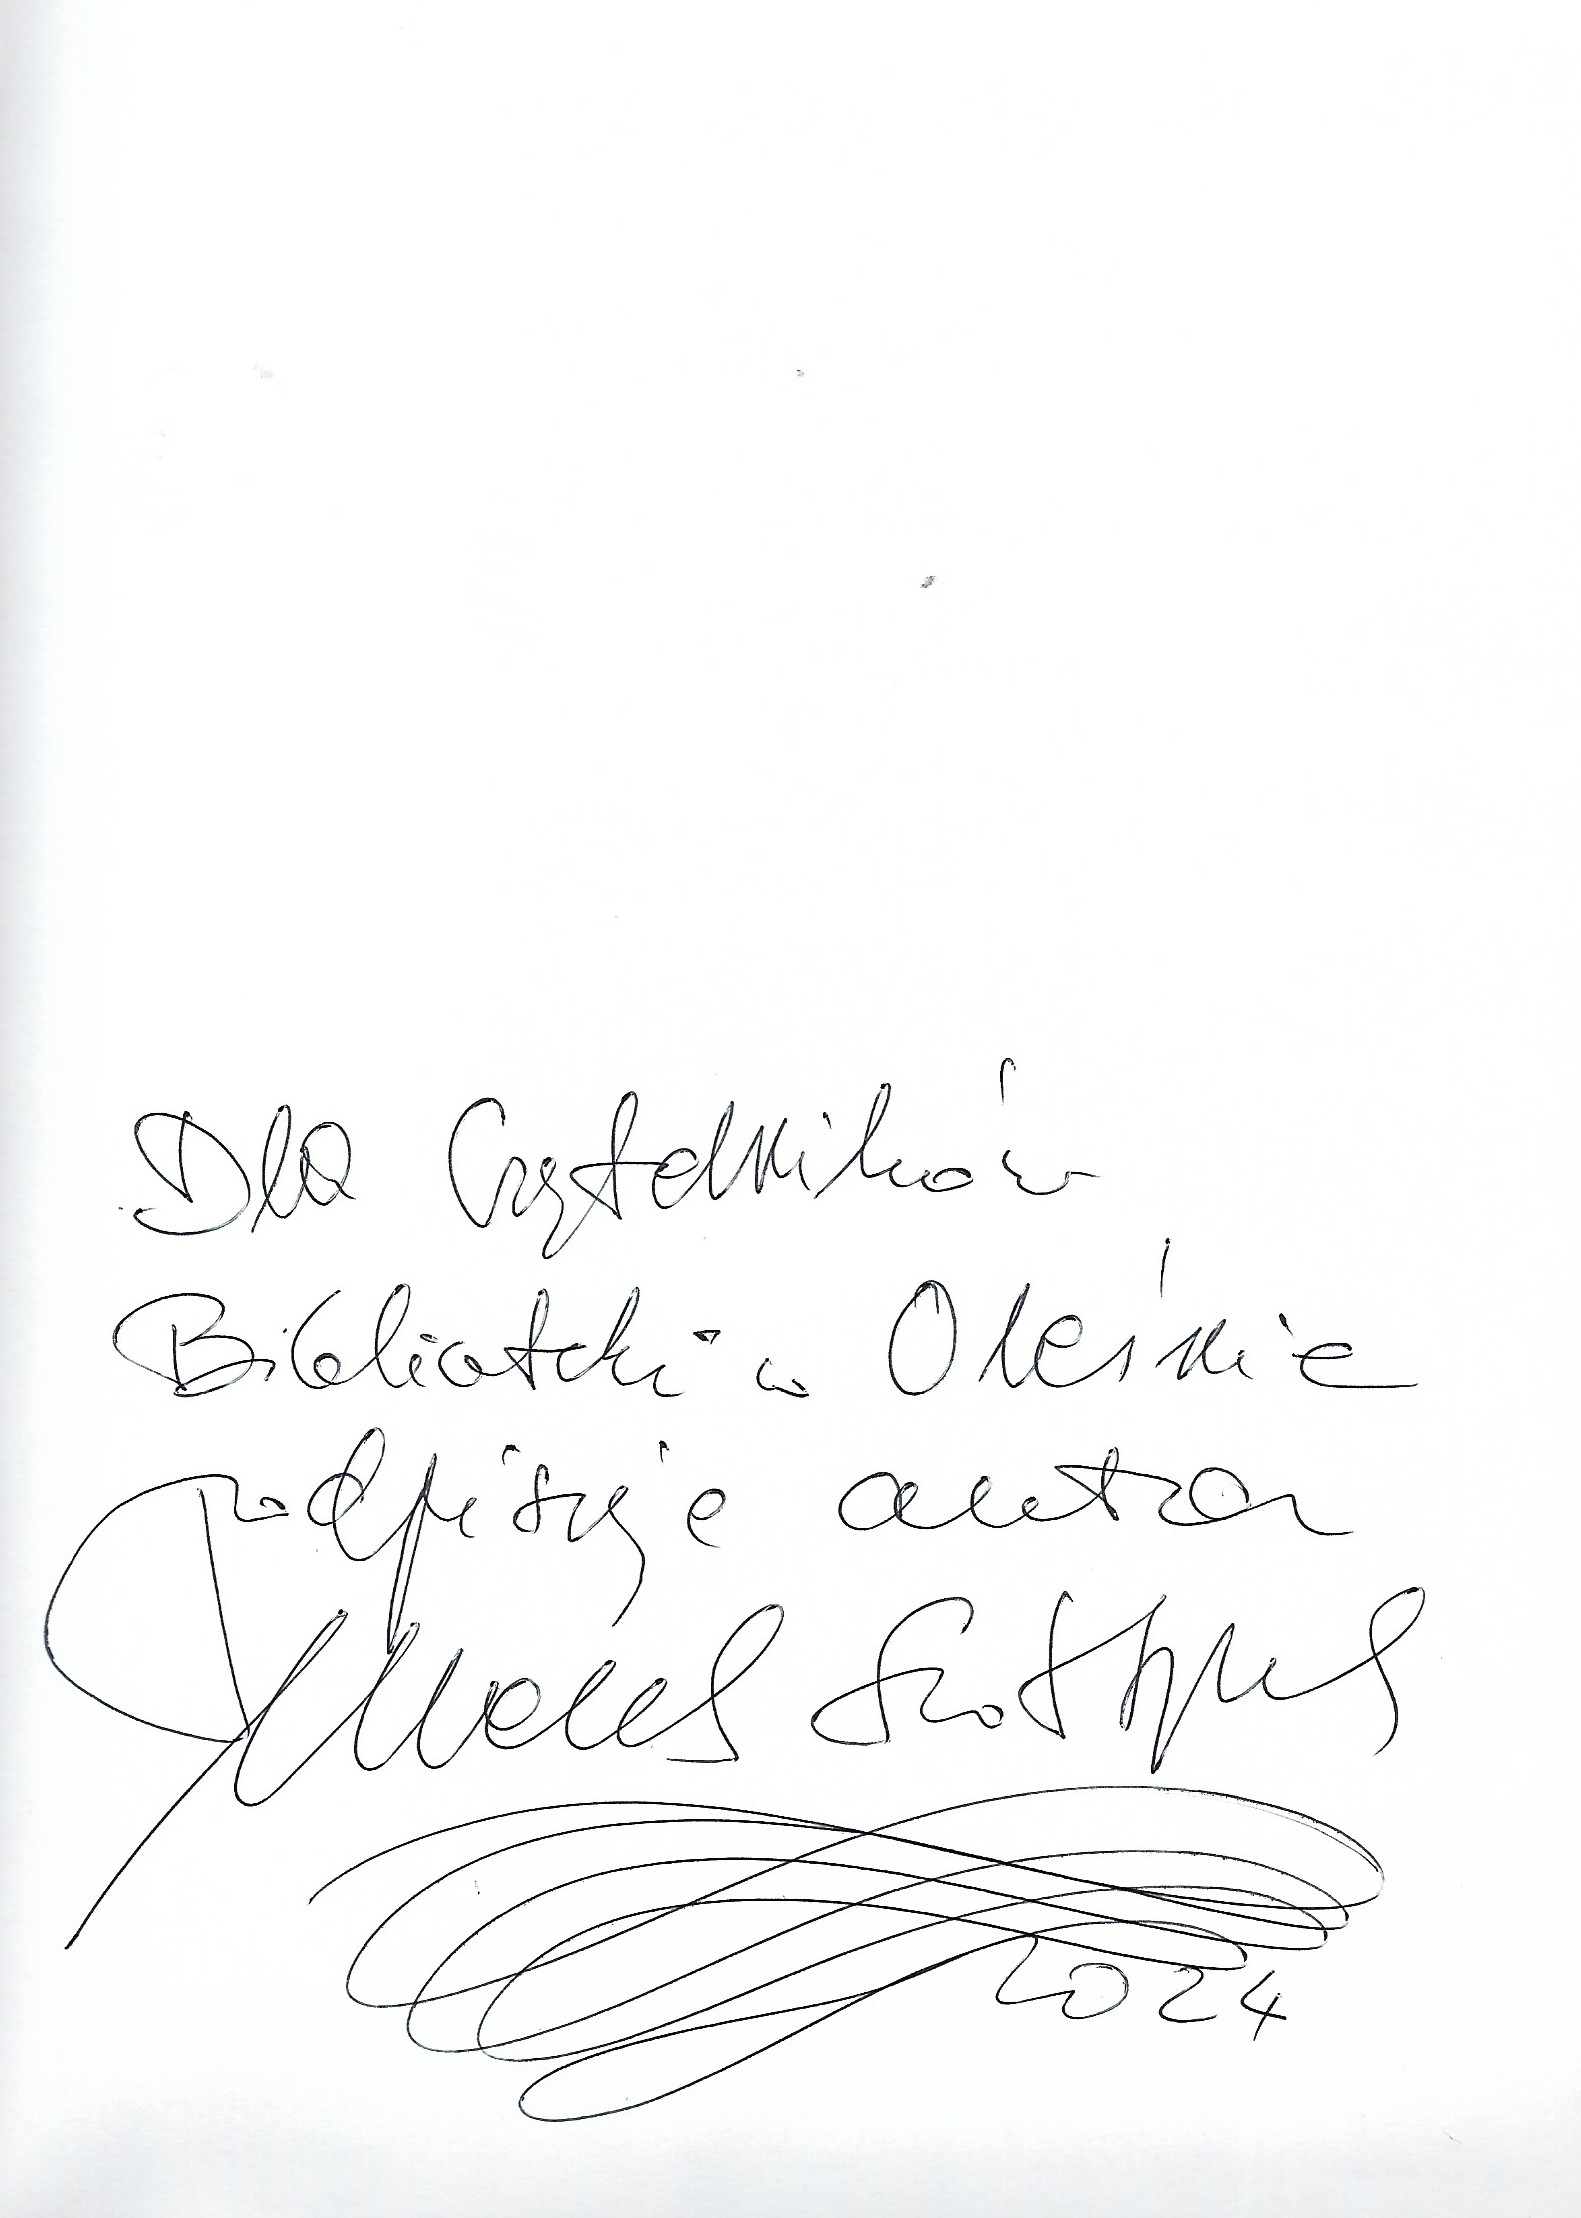 Dla Czytelników
Biblioteki w Oleśnie
podpisuje autor
Marek Szołtysek
2024